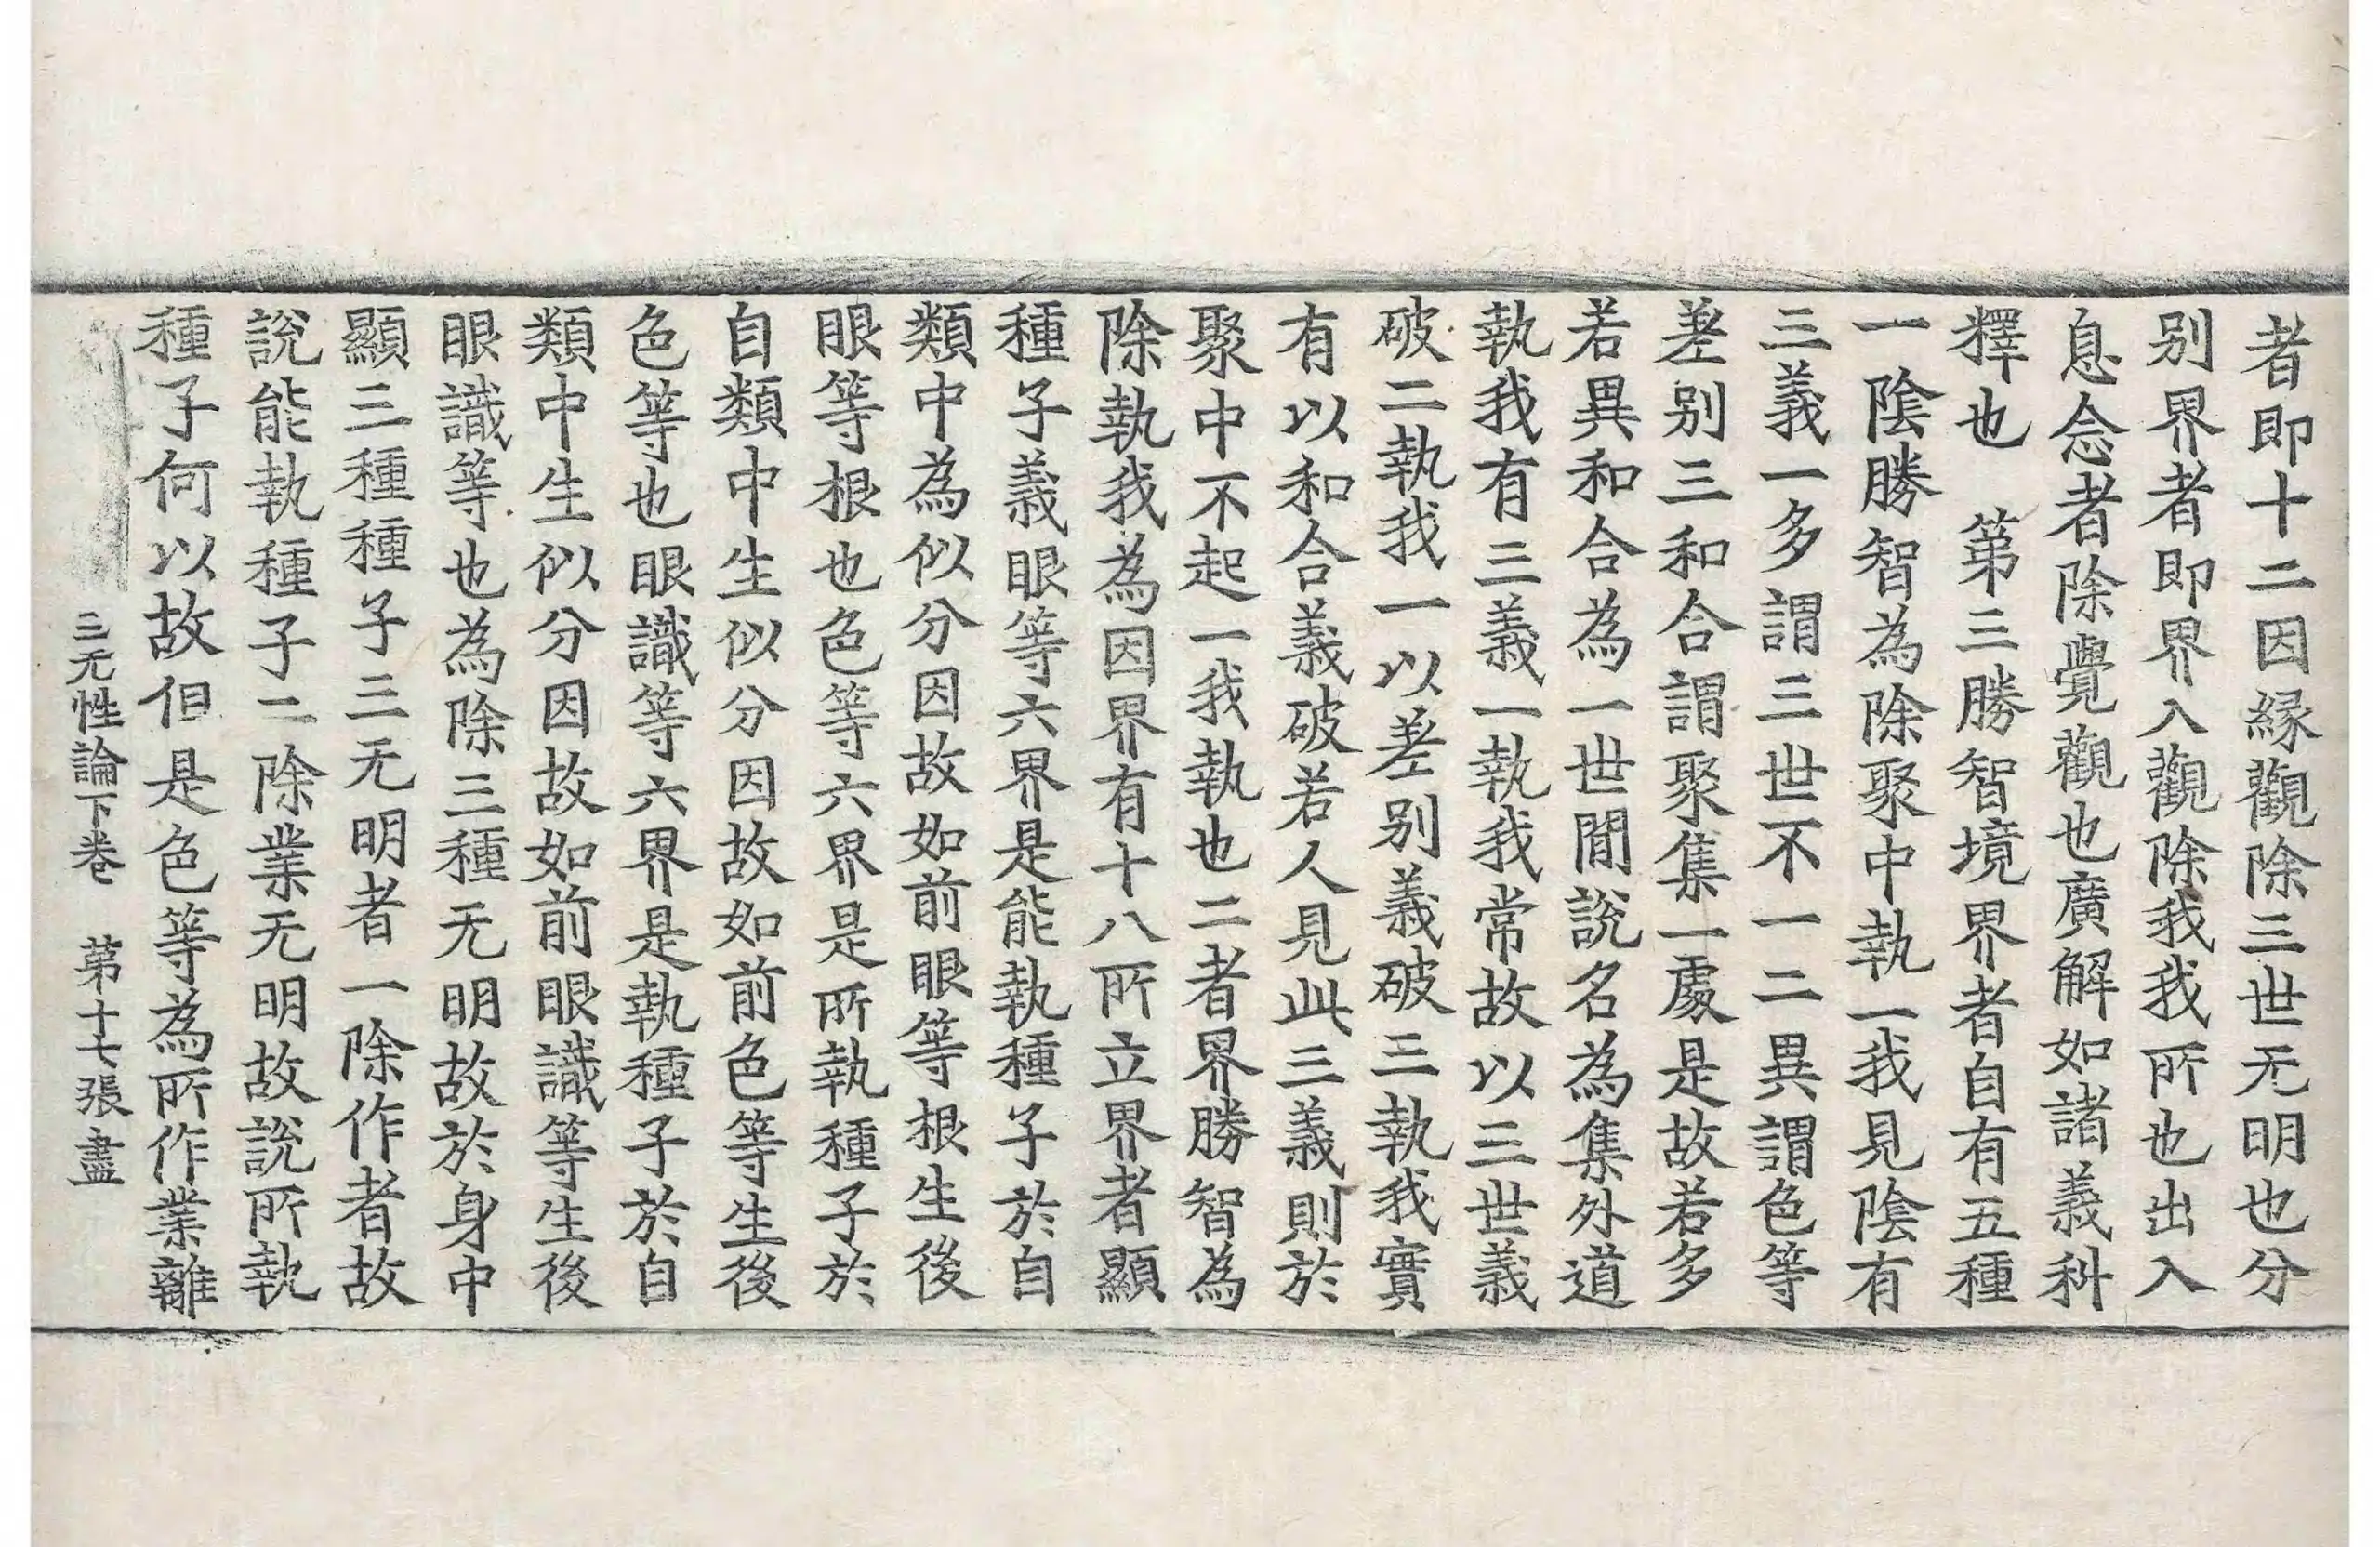 者即十二因緣觀除三世无明也分
別界者即界入觀除我我所也出入
息念者除覺觀也廣解如諸義科
釋也　第三勝智境界者自有五種
一陰勝智為除聚中執一我見陰有
三義一多謂三世不一二異謂色等
差別三和合謂聚集一處是故若多
若異和合為一世間說名為集外道
執我有三義一執我常故以三世義
破二執我一以差別義破三執我實
有以和合義破若人見此三義則於
聚中不起一我執也二者界勝智為
除執我為因界有十八所立界者顯
種子義眼等六界是能執種子於自
類中為似分因故如前眼等根生後
眼等根也色等六界是所執種子於
自類中生似分因故如前色等生後
色等也眼識等六界是執種子於自
類中生似分因故如前眼識等生後
眼識等也為除三種无明故於身中
顯三種種子三无明者一除作者故
說能執種子二除業无明故說所執
種子何以故但是色等為所作業離
三无性論下卷　第十七張盡